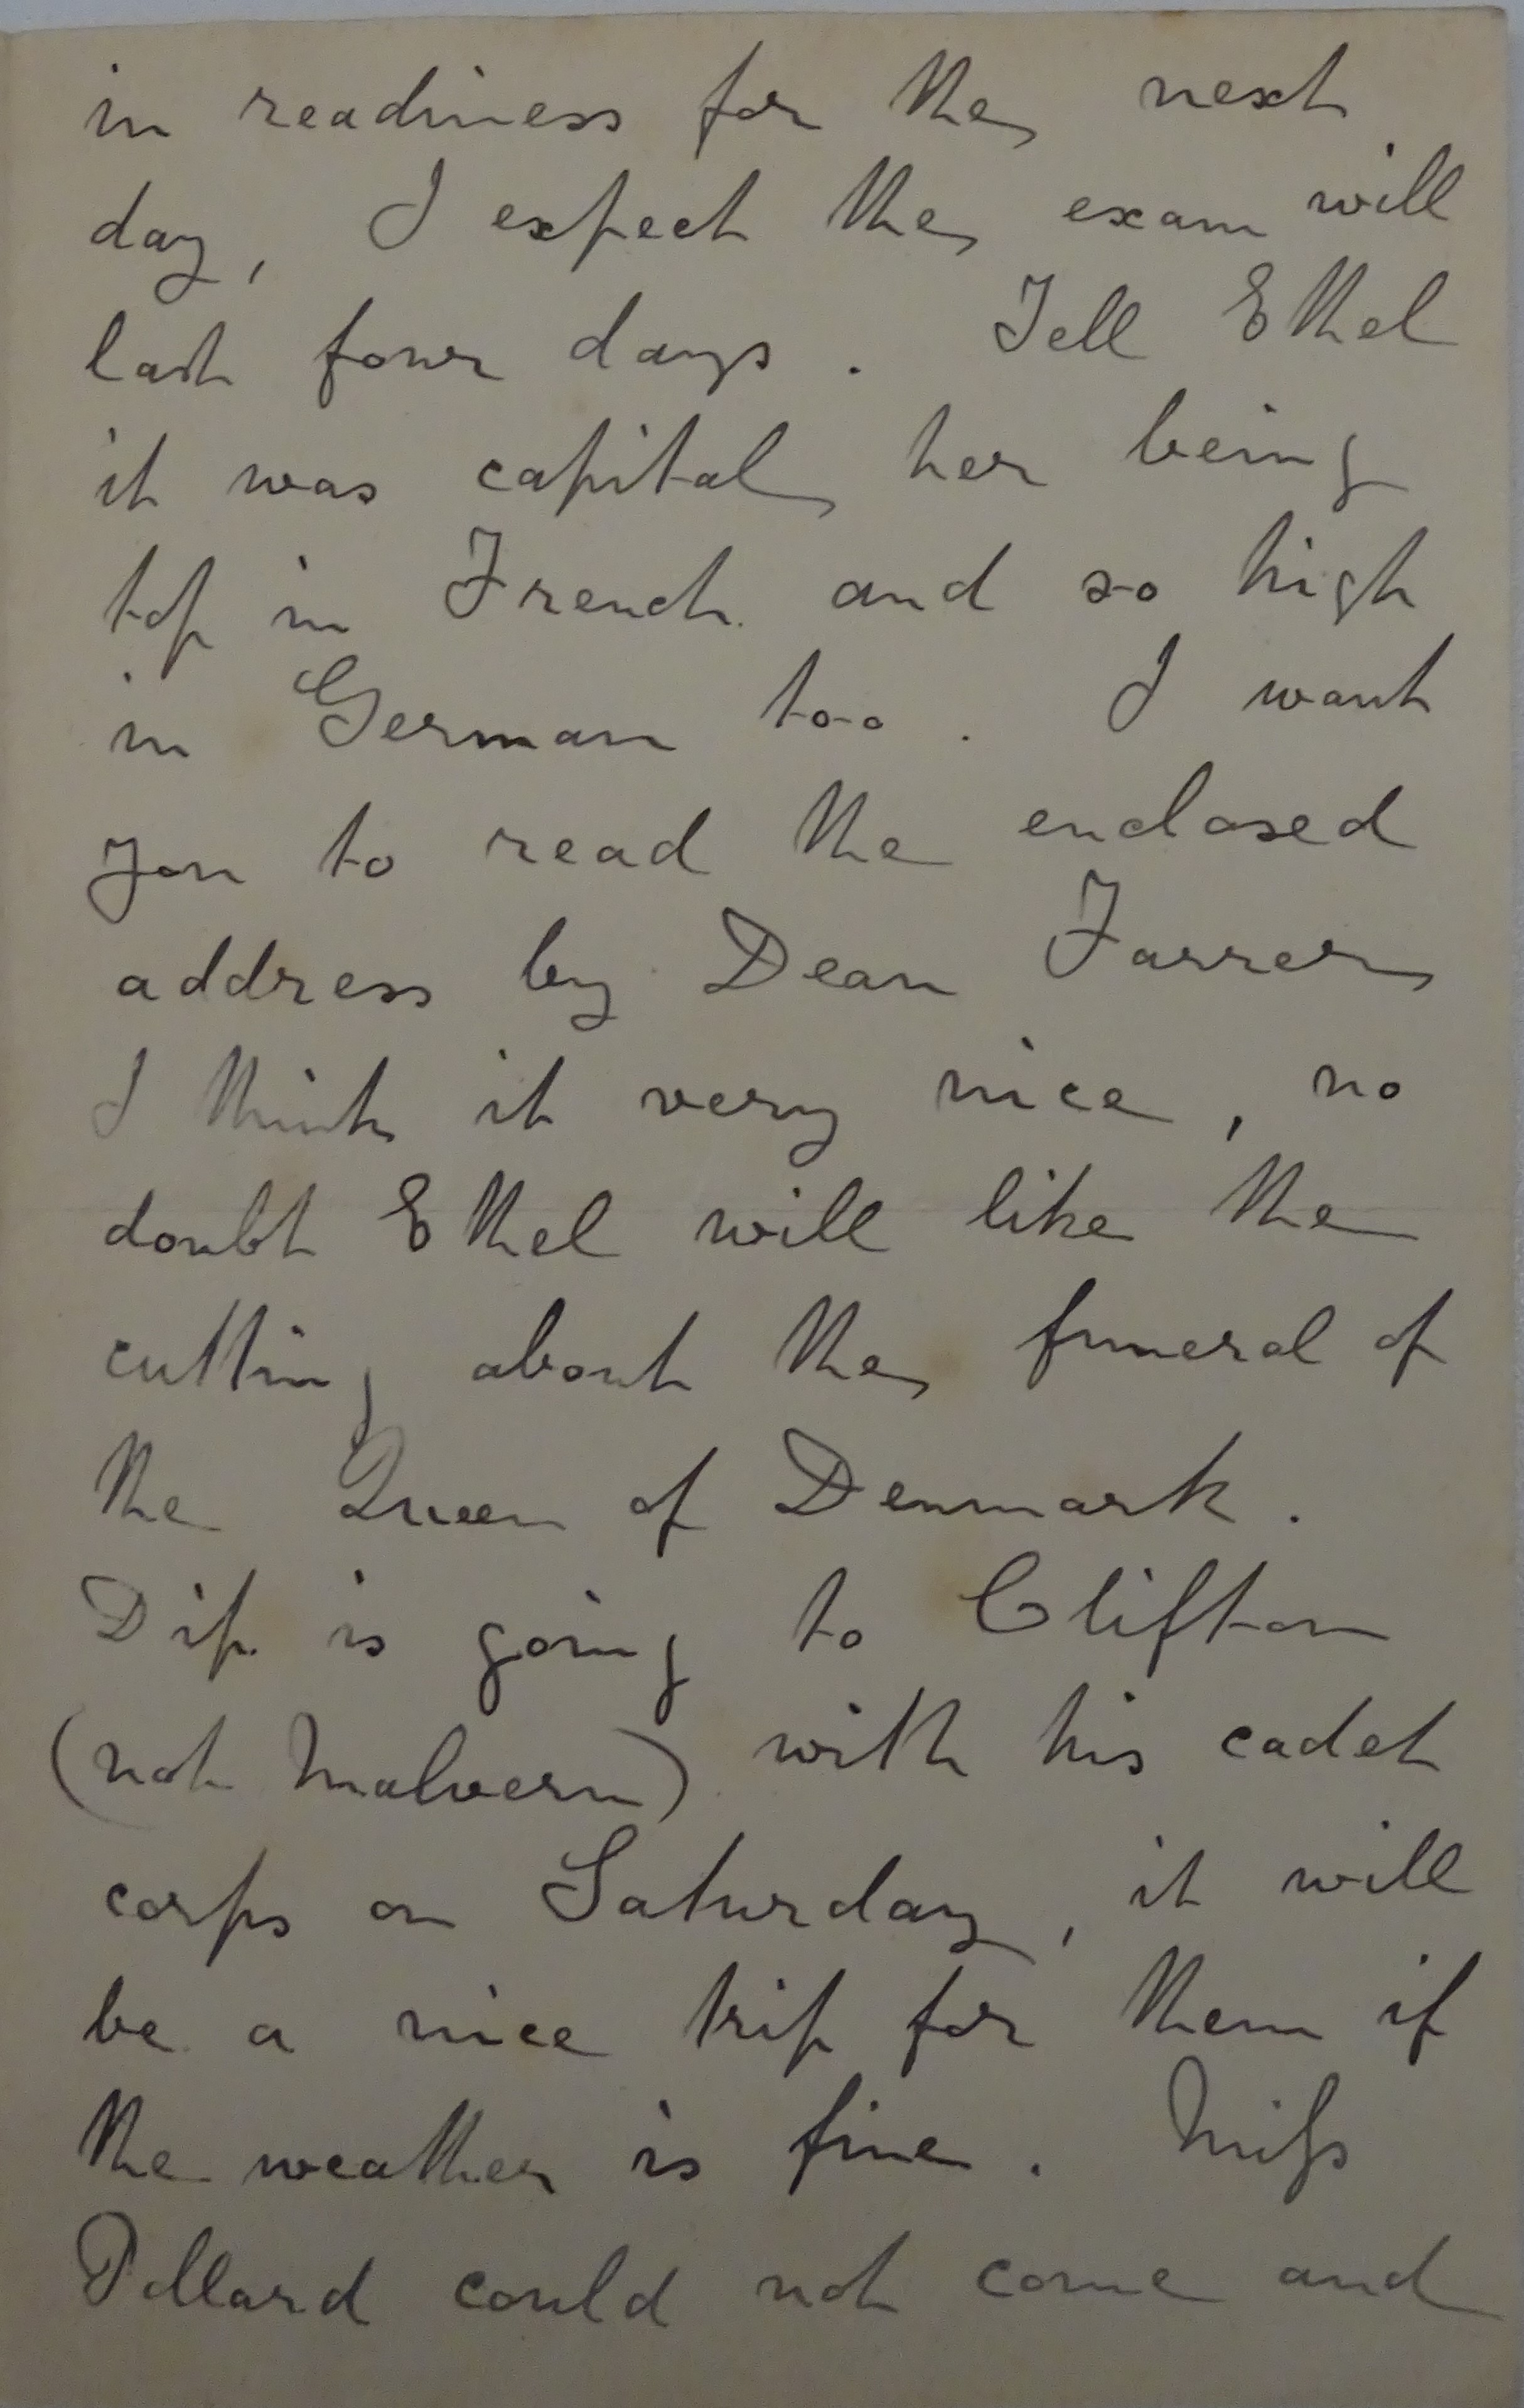 in readiness for the next
day, I expect the exam will
last four days. Tell Ethel
it was capital her being
top in French and so high
in German too. I want
you to read the enclosed
address by Dean Farrer
I think it very nice, no
doubt Ethel will like the
cutting about the funeral of
the Queen of Denmark.
Dip is going to Clifton
(not Malvern) with his cadet
corps on Saturday, it will
be a nice trip for them if
the weather is fine. Miss
Pollard could not come and